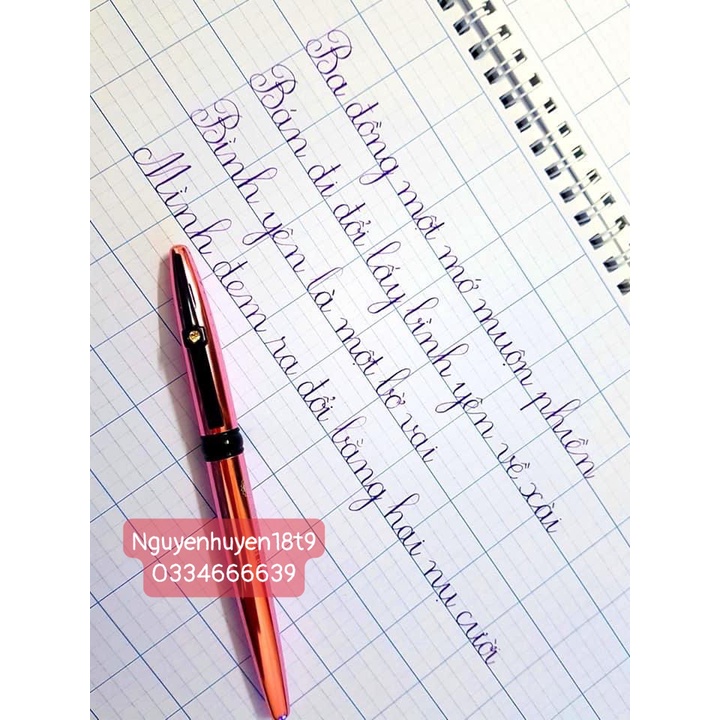 Ba đồng một mớ muộn phiền
Bán đi đổi lấy bình yên về xài
Bình yên là một bờ vai
Mình đem ra đổi bằng hai nụ cười
Nguyenhuyen18t9
0334666639